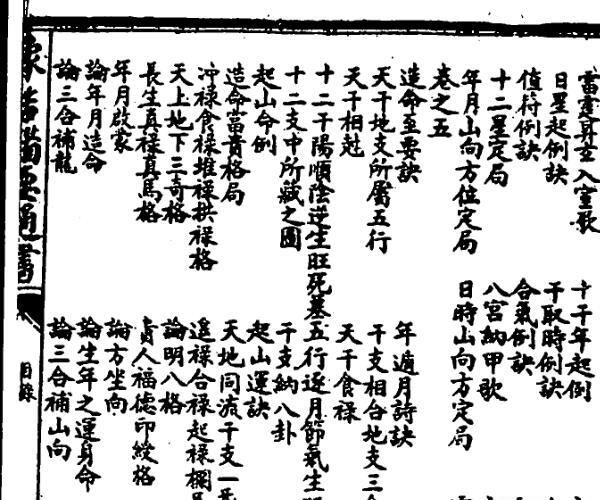 雷霆昇玄入室歌 十干年起例
日星起例訣 干取時例訣
值符例訣 合氣例訣
十二星定局 八宮納甲歌
年月山向方位定局 日時山向方定局
卷之五
造命至要訣 年遁月詩訣
天干地支所屬五行 干支相合地支三合
天干相尅 天干食祿
十二干陽順陰逆生旺死墓 五行逐月節氣生旺
十二支中所藏之圖 干支納八卦
起山命例 起山運訣
造命富貴格局 天地同流干支一氣
沖祿食祿堆祿拱祿格 遙祿合祿起祿
天上地下三奇格 論明八格
長生真祿真馬格 貴人福德印綬格
年月啟蒙 論方坐向
論年月造命 論生年之運身命
論三合補龍 論三合補山向
象吉備要通書
目錄